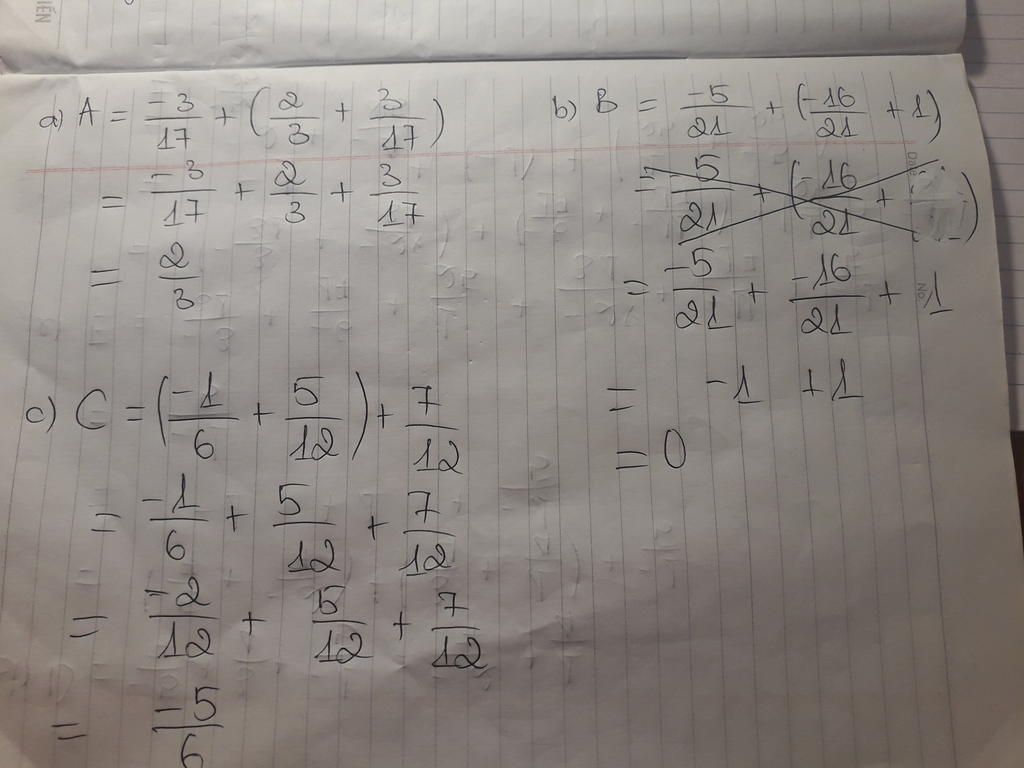 a) A = -3/17 + (2/3 + 3/17)
= -3/17 + 2/3 + 3/17
= 2/3
b) B = -5/21 + (-16/21 + 1)
= -5/21 + -16/21 + 1
= -1 + 1
= 0
c) C = (-1/6 + 5/12) + 7/12
= -1/6 + 5/12 + 7/12
= -2/12 + 5/12 + 7/12
= -5/6